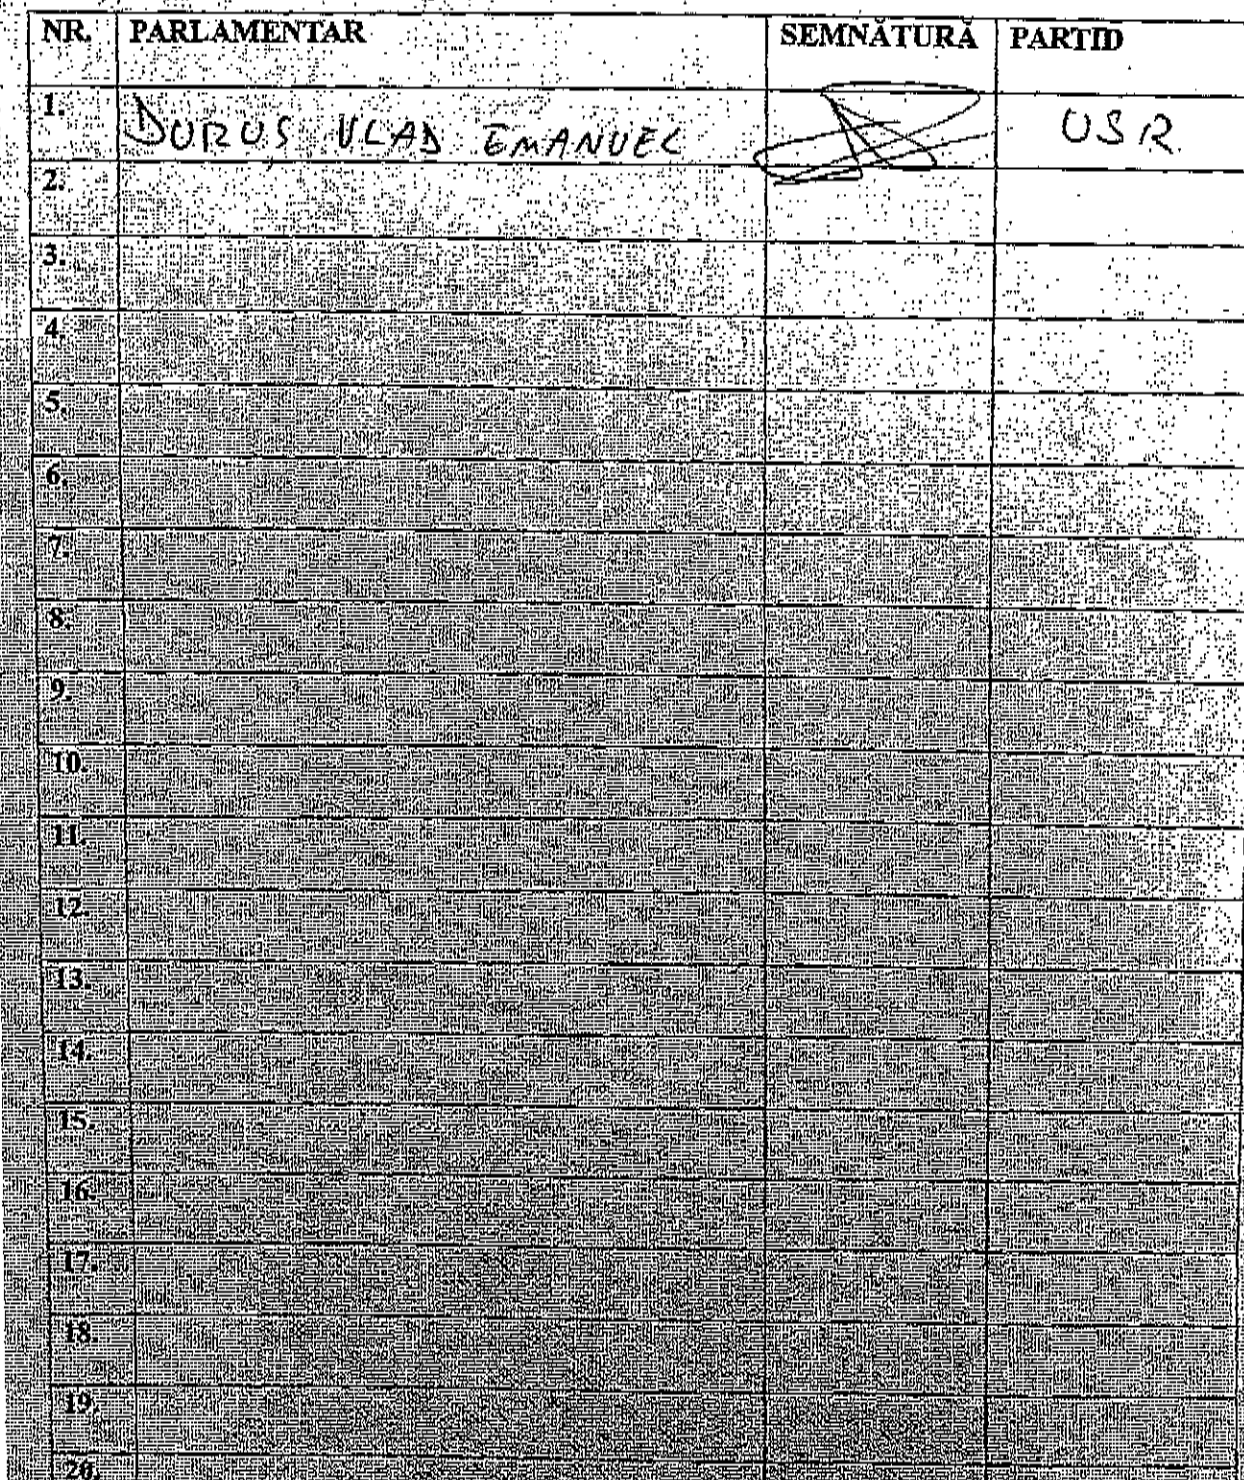 NR. PARLAMENTAR SEMNĂTURĂ PARTID
1. DURUȘ VLAD EMANUEL USR
2.
3.
4.
5.
6.
7.
8.
9.
10.
11.
12.
13.
14.
15.
16.
17.
18.
19.
20.